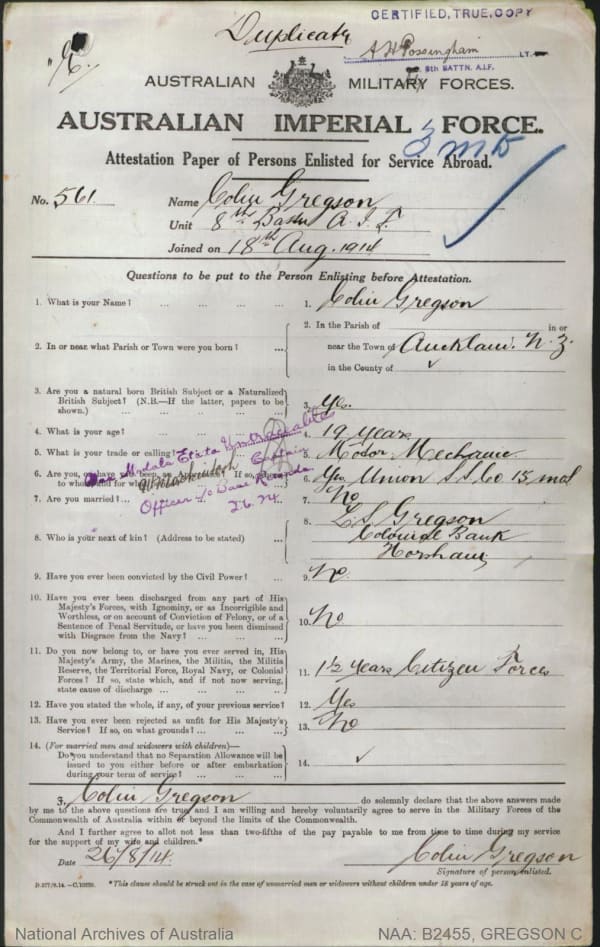 Duplicate
CERTIFIED TRUE COPY
A H Possingham
LT.
8th BATTN. A.I.F.
AUSTRALIAN MILITARY FORCES.
AUSTRALIAN IMPERIAL FORCE.
Attestation Paper of Persons Enlisted for Service Abroad.
No. 561 Name Colin Gregson
Unit 8th Battn A.I.F
Joined on 18th Aug. 1914
Questions to be put to the Person Enlisting before Attestation.
1. What is your Name? ... ... ... ... 1. Colin Gregson
2. In or near what Parish or Town were you born? ... 2. In the Parish of in or
near the Town of Auckland. N.Z.
in the County of
3. Are you a natural born British Subject or a Naturalized
British Subject? (N.B.—If the latter, papers to be
shown.) ... ... ... ... 3. Yes.
4. What is your age? ... ... ... 4. 19 years
5. What is your trade or calling? 5. Motor Mechanic
6. Are you, or have you been an Apprentice? If so,
to whom and for what 6. Yes Union S.S. Co 15 mos
7. Are you married? ... ... 7. No
8. Who is your next of kin? (Address to be stated) ... 8. L S Gregson
Colonial Bank
Horsham
9. Have you ever been convicted by the Civil Power? ... 9. No.
10. Have you ever been discharged from any part of His
Majesty's Forces, with Ignominy, or as Incorrigible and
Worthless, or on account of Conviction of Felony, or of a
Sentence of Penal Servitude, or have you been dismissed
with Disgrace from the Navy? ... ... ... 10. No
11. Do you now belong to, or have you ever served in, His
Majesty's Army, the Marines, the Militia, the Militia
Reserve, the Territorial Force, Royal Navy, or Colonial
Forces? If so, state which, and if not now serving,
state cause of discharge ... ... ... 11. 1½ years Citizen Forces
12. Have you stated the whole, if any, of your previous service? 12. Yes
13. Have you ever been rejected as unfit for His Majesty's
Service? If so, on what grounds? ... ... 13. No
14. (For married men and widowers with children)—
Do you understand that no Separation Allowance will be
issued to you either before or after embarkation
during your term of service? ... ... 14.
War Medals
Captain
Officer i/c Base Records
3. Colin Gregson do solemnly declare that the above answers made
by me to the above questions are true, and I am willing and hereby voluntarily agree to serve in the Military Forces of the
Commonwealth of Australia within or beyond the limits of the Commonwealth.
And I further agree to allot not less than two-fifths of the pay payable to me from time to time during my service
for the support of my wife and children.*
Date 26/8/14. Colin Gregson
Signature of person enlisted.
*This clause should be struck out in the case of unmarried men or widowers without children under 18 years of age.
National Archives of Australia NAA: B2455, GREGSON C